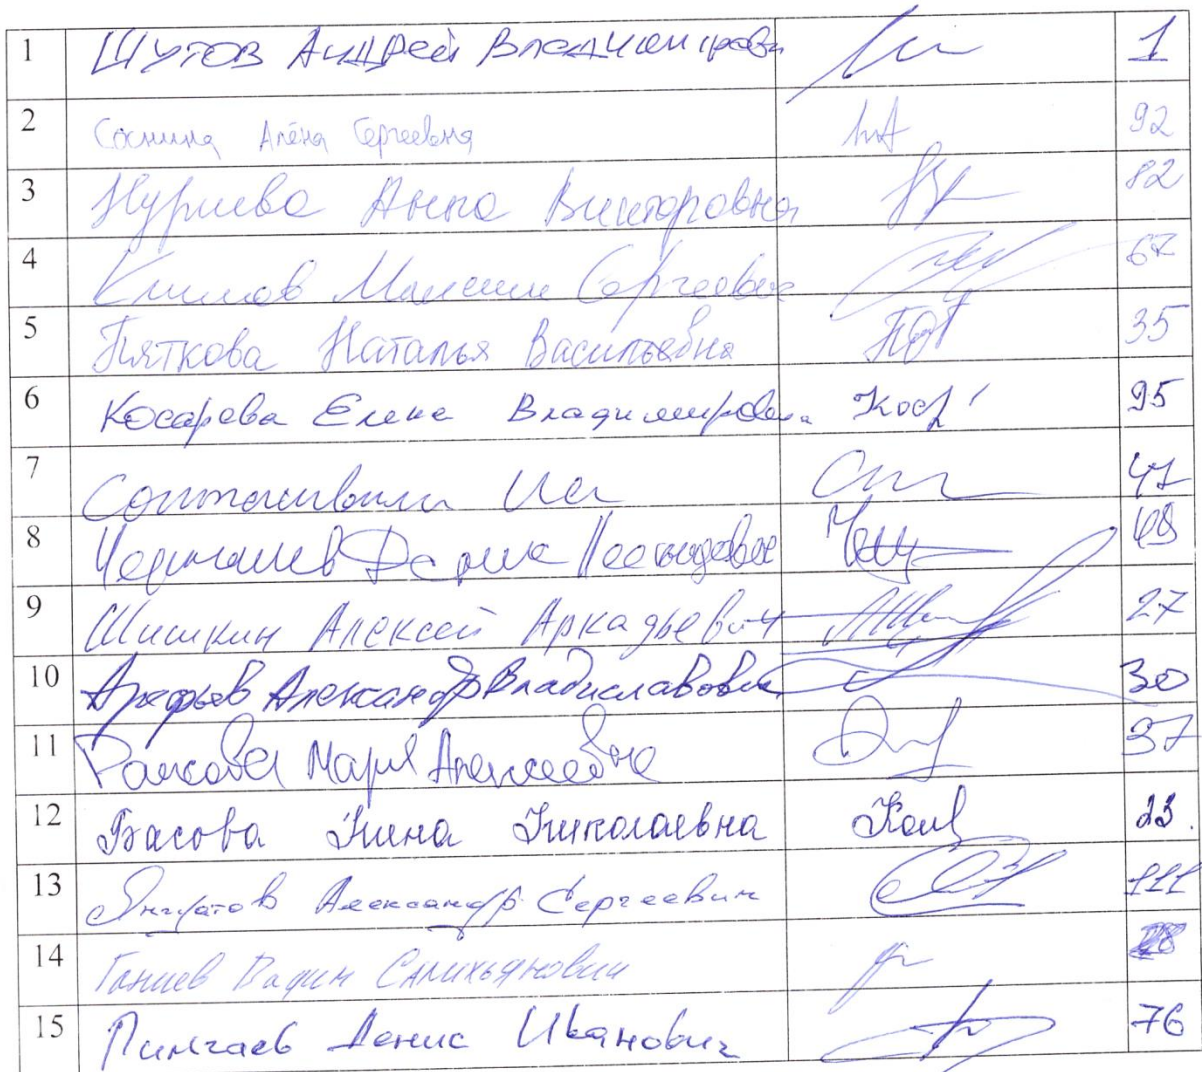 1 Шутов Андрей Владимирови 1
2 Соснина Алёна Сергеевна 92
3 Нуриева Анна Викторовна 82
4 Климов Максим Сергеевич 67
5 Пяткова Наталья Васильевна 35
6 Косарева Елена Владимировна Кос 95
7 47
8 Денис 49
9 Шишкин Алексей Аркадьевич 27
10 Арефьев Александр Владиславович 30
11 Мария Алексеевна 37
12 Басова Нина Николаевна 23.
13 Александр Сергеевич 111
14 Ганиев Вадим
15 Денис Иванович 76